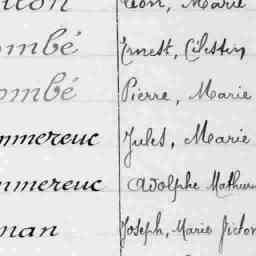 Léon, Marie
ombé Ernest, Célestin
ombé Pierre, Marie
mmereuc Jules, Marie
mmereuc Adolphe Mathurin
man Joseph, Marie Victor